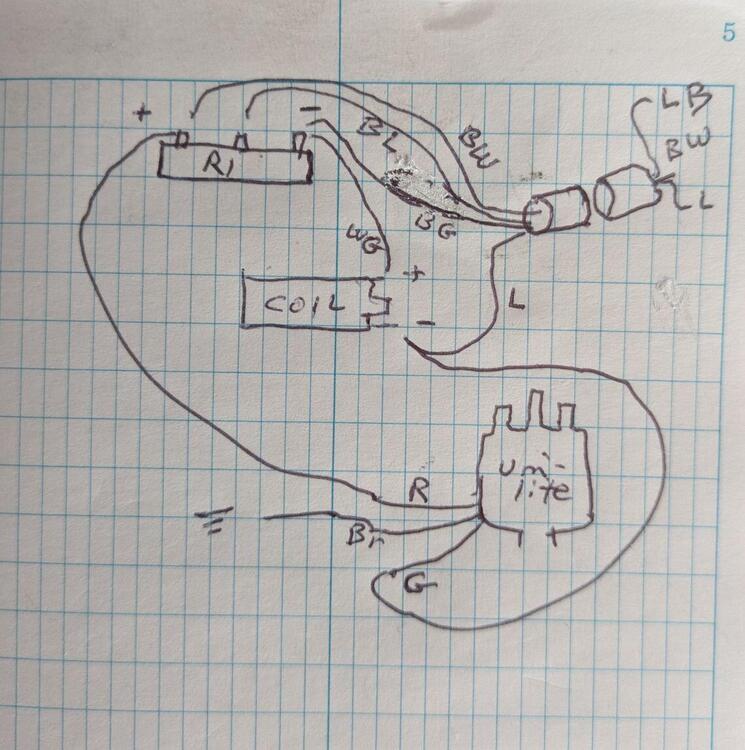 5
+
-
R1
BL
BW
BG
WG
LB
BW
LL
COIL
+
-
L
uni-
lite
R
Br
G